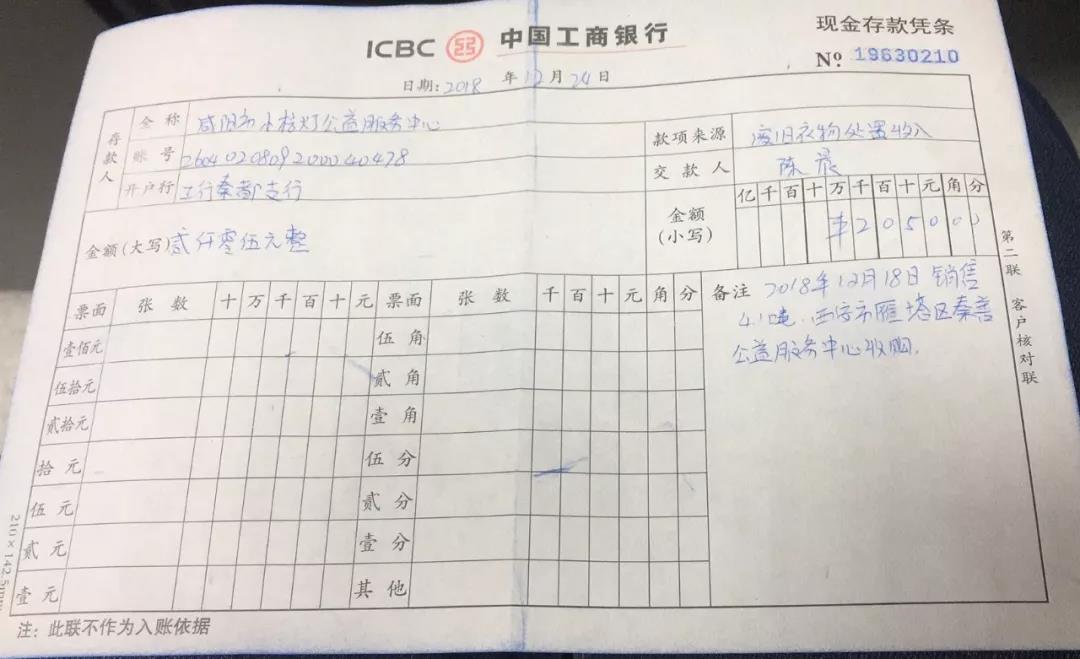 ICBC 中国工商银行
现金存款凭条
№ 19630210
日期: 2018 年 12 月 24 日
存款人
全称 咸阳市小桔灯公益服务中心
账号 2604020809200040478
开户行 工行秦都支行
款项来源 废旧衣物处置收入
交款人 陈晨
金额(大写) 贰仟零伍元整
金额(小写)
亿 千 百 十 万 千 百 十 元 角 分
¥ 2 0 5 0 0 0
票面 张数 十 万 千 百 十 元 票面 张数 千 百 十 元 角 分
壹佰元 伍角
伍拾元 贰角
贰拾元 壹角
拾元 伍分
伍元 贰分
贰元 壹分
壹元 其他
备注 2018年12月18日 销售
4.1吨. 西安市雁塔区秦善
公益服务中心收购.
第二联 客户核对联
210×142.5mm
注: 此联不作为入账依据